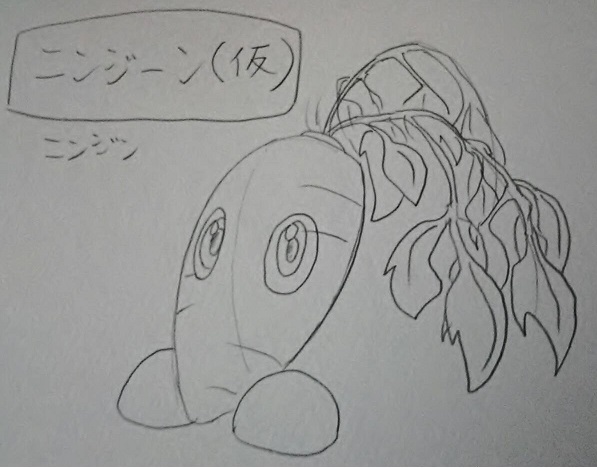 ニンジーン(仮)
ニンジン